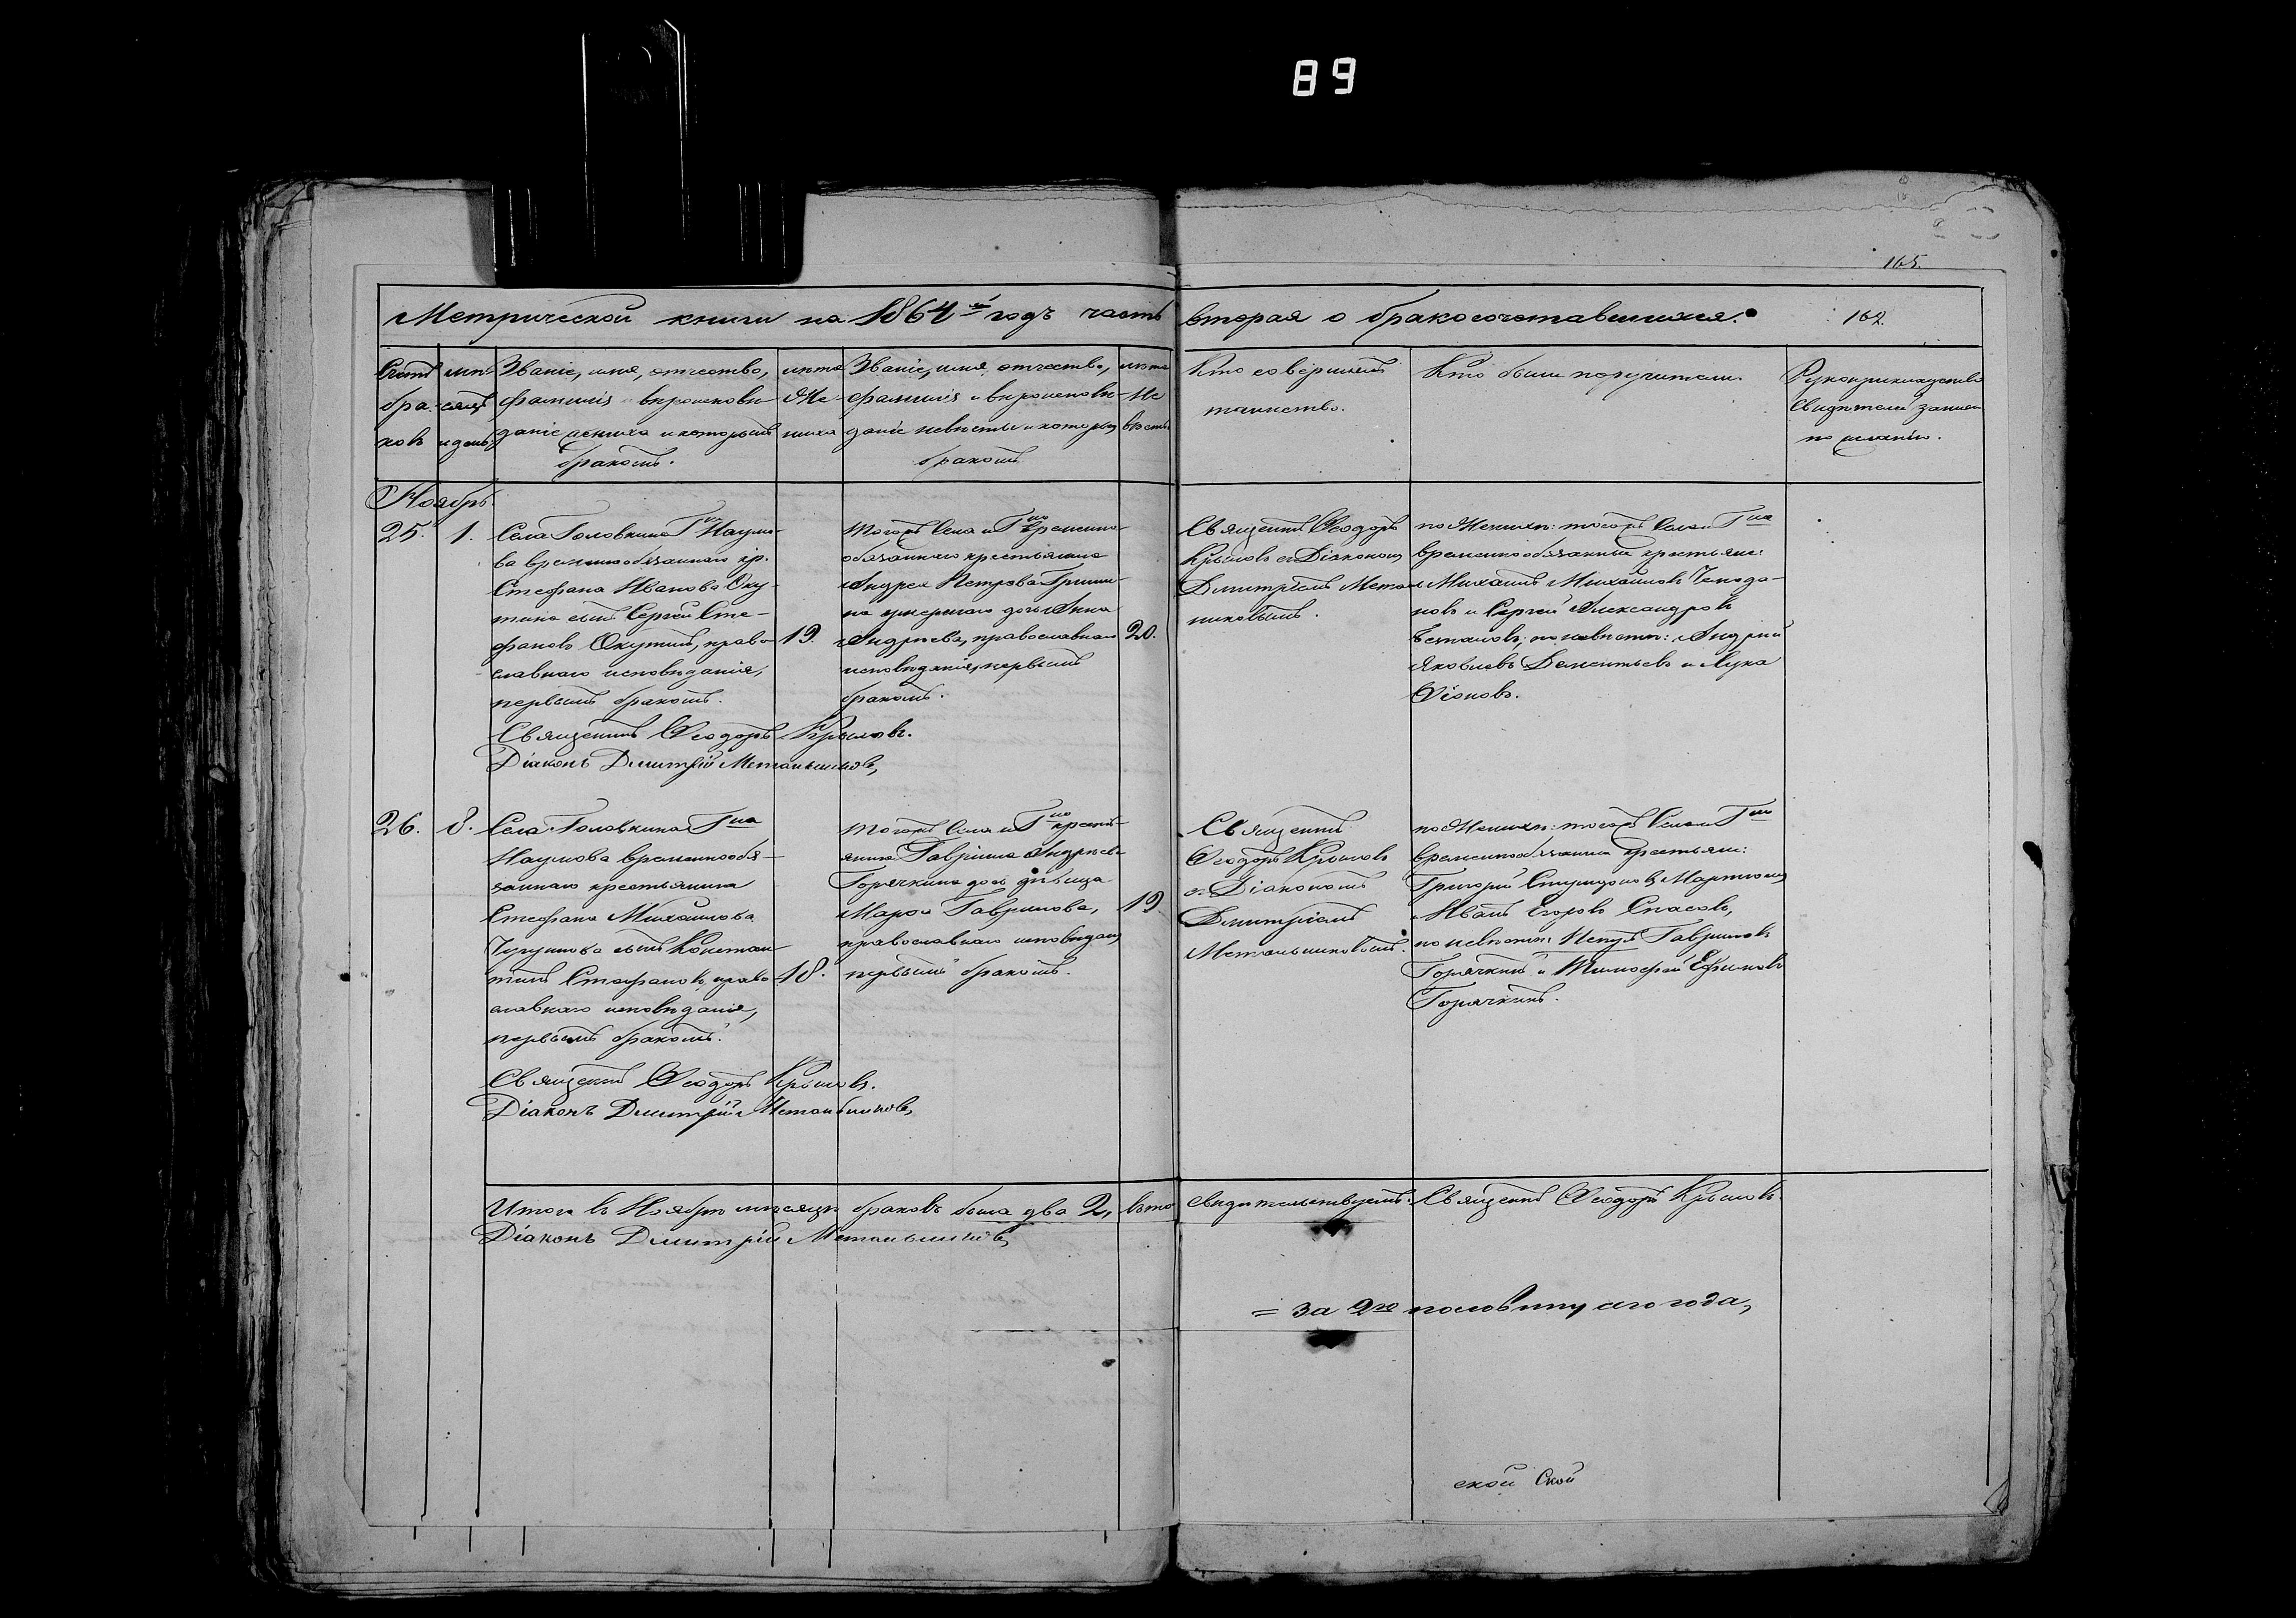 89
165.
Метрической книги на 1864й годъ часть вторая о бракосочетавшихся.
162.
Счетъ бра-ковъ
мѣ-сяцъ и день.
Званіе, имя, отчество,
фамилія и вѣроисповѣ-
даніе жениха и которымъ
бракомъ.
лѣта
Же-
ниха
Званіе, имя, отчество,
фамилія и вѣроисповѣ-
даніе невѣсты и которы
бракомъ
лѣта
Не
вѣсты
Кто совершалъ
таинство.
Кто были поручители.
Рукоприкладство
свидѣтелей записи
по желанію.
Ноябрь.
25.
1.
Села Головкина Гна Наумо-
ва временнообязаннаго кр.
Стефана Иванова Оку-
тина сынъ Сергей Сте-
фановъ Окутинъ, право-
славнаго исповѣданія,
первымъ бракомъ.
19.
тогожъ Села и Гна временно-
обязаннаго крестьянина
Андрея Петрова Гриши-
на умершаго дочь Анна
Андреева, православнаго
исповѣданія, первымъ
бракомъ.
20.
Священникъ Ѳеодоръ
Крыловъ съ Діакономъ
Димитріемъ Метал
никовымъ.
по Женихѣ: тогожъ Села и Гна
временнообязанные крестьяне:
Михаилъ Михайловъ Чемода-
новъ и Сергей Александровъ
по невѣстѣ: Андрей
Яковлевъ Дементьевъ и Лука
Священникъ Ѳеодоръ Крыловъ.
Діаконъ Димитрій Метальниковъ,
26.
8.
Села Головкина Гна
Наумова временнообя-
заннаго крестьянина
Стефана Михайлова
Чугунова сынъ Констан-
тинъ Стефановъ, право-
славнаго исповѣданія,
первымъ бракомъ.
18.
тогожъ Села и Гна кресть-
янина Гавріила Андреева
Горячкина дочь дѣвица
Марѳа Гаврилова,
православнаго исповѣдан
первымъ бракомъ.
19
Священникъ
Ѳеодоръ Крыловъ
съ Діакономъ
Димитріемъ
Метальниковымъ.
по Женихѣ: тогожъ Села и Гна
временнообязанные крестьяне:
Григорій Спиридоновъ
Иванъ Егоровъ Спасовъ,
по невѣстѣ: Гавриловъ
Горячкинъ и Тимофей Ефимовъ
Горячкинъ.
Священникъ Ѳеодоръ Крыловъ.
Діаконъ Димитрій Метальниковъ,
Итого въ Ноябрѣ мѣсяцѣ браковъ было два 2, въ томъ свидѣтельствуемъ: Священникъ Ѳеодоръ Крыловъ
Діаконъ Димитрій Метальниковъ,
= за 2ю половину сего года,
ской Ской